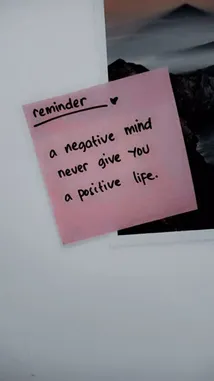 reminder ♥
a negative mind
never give you
a positive life.